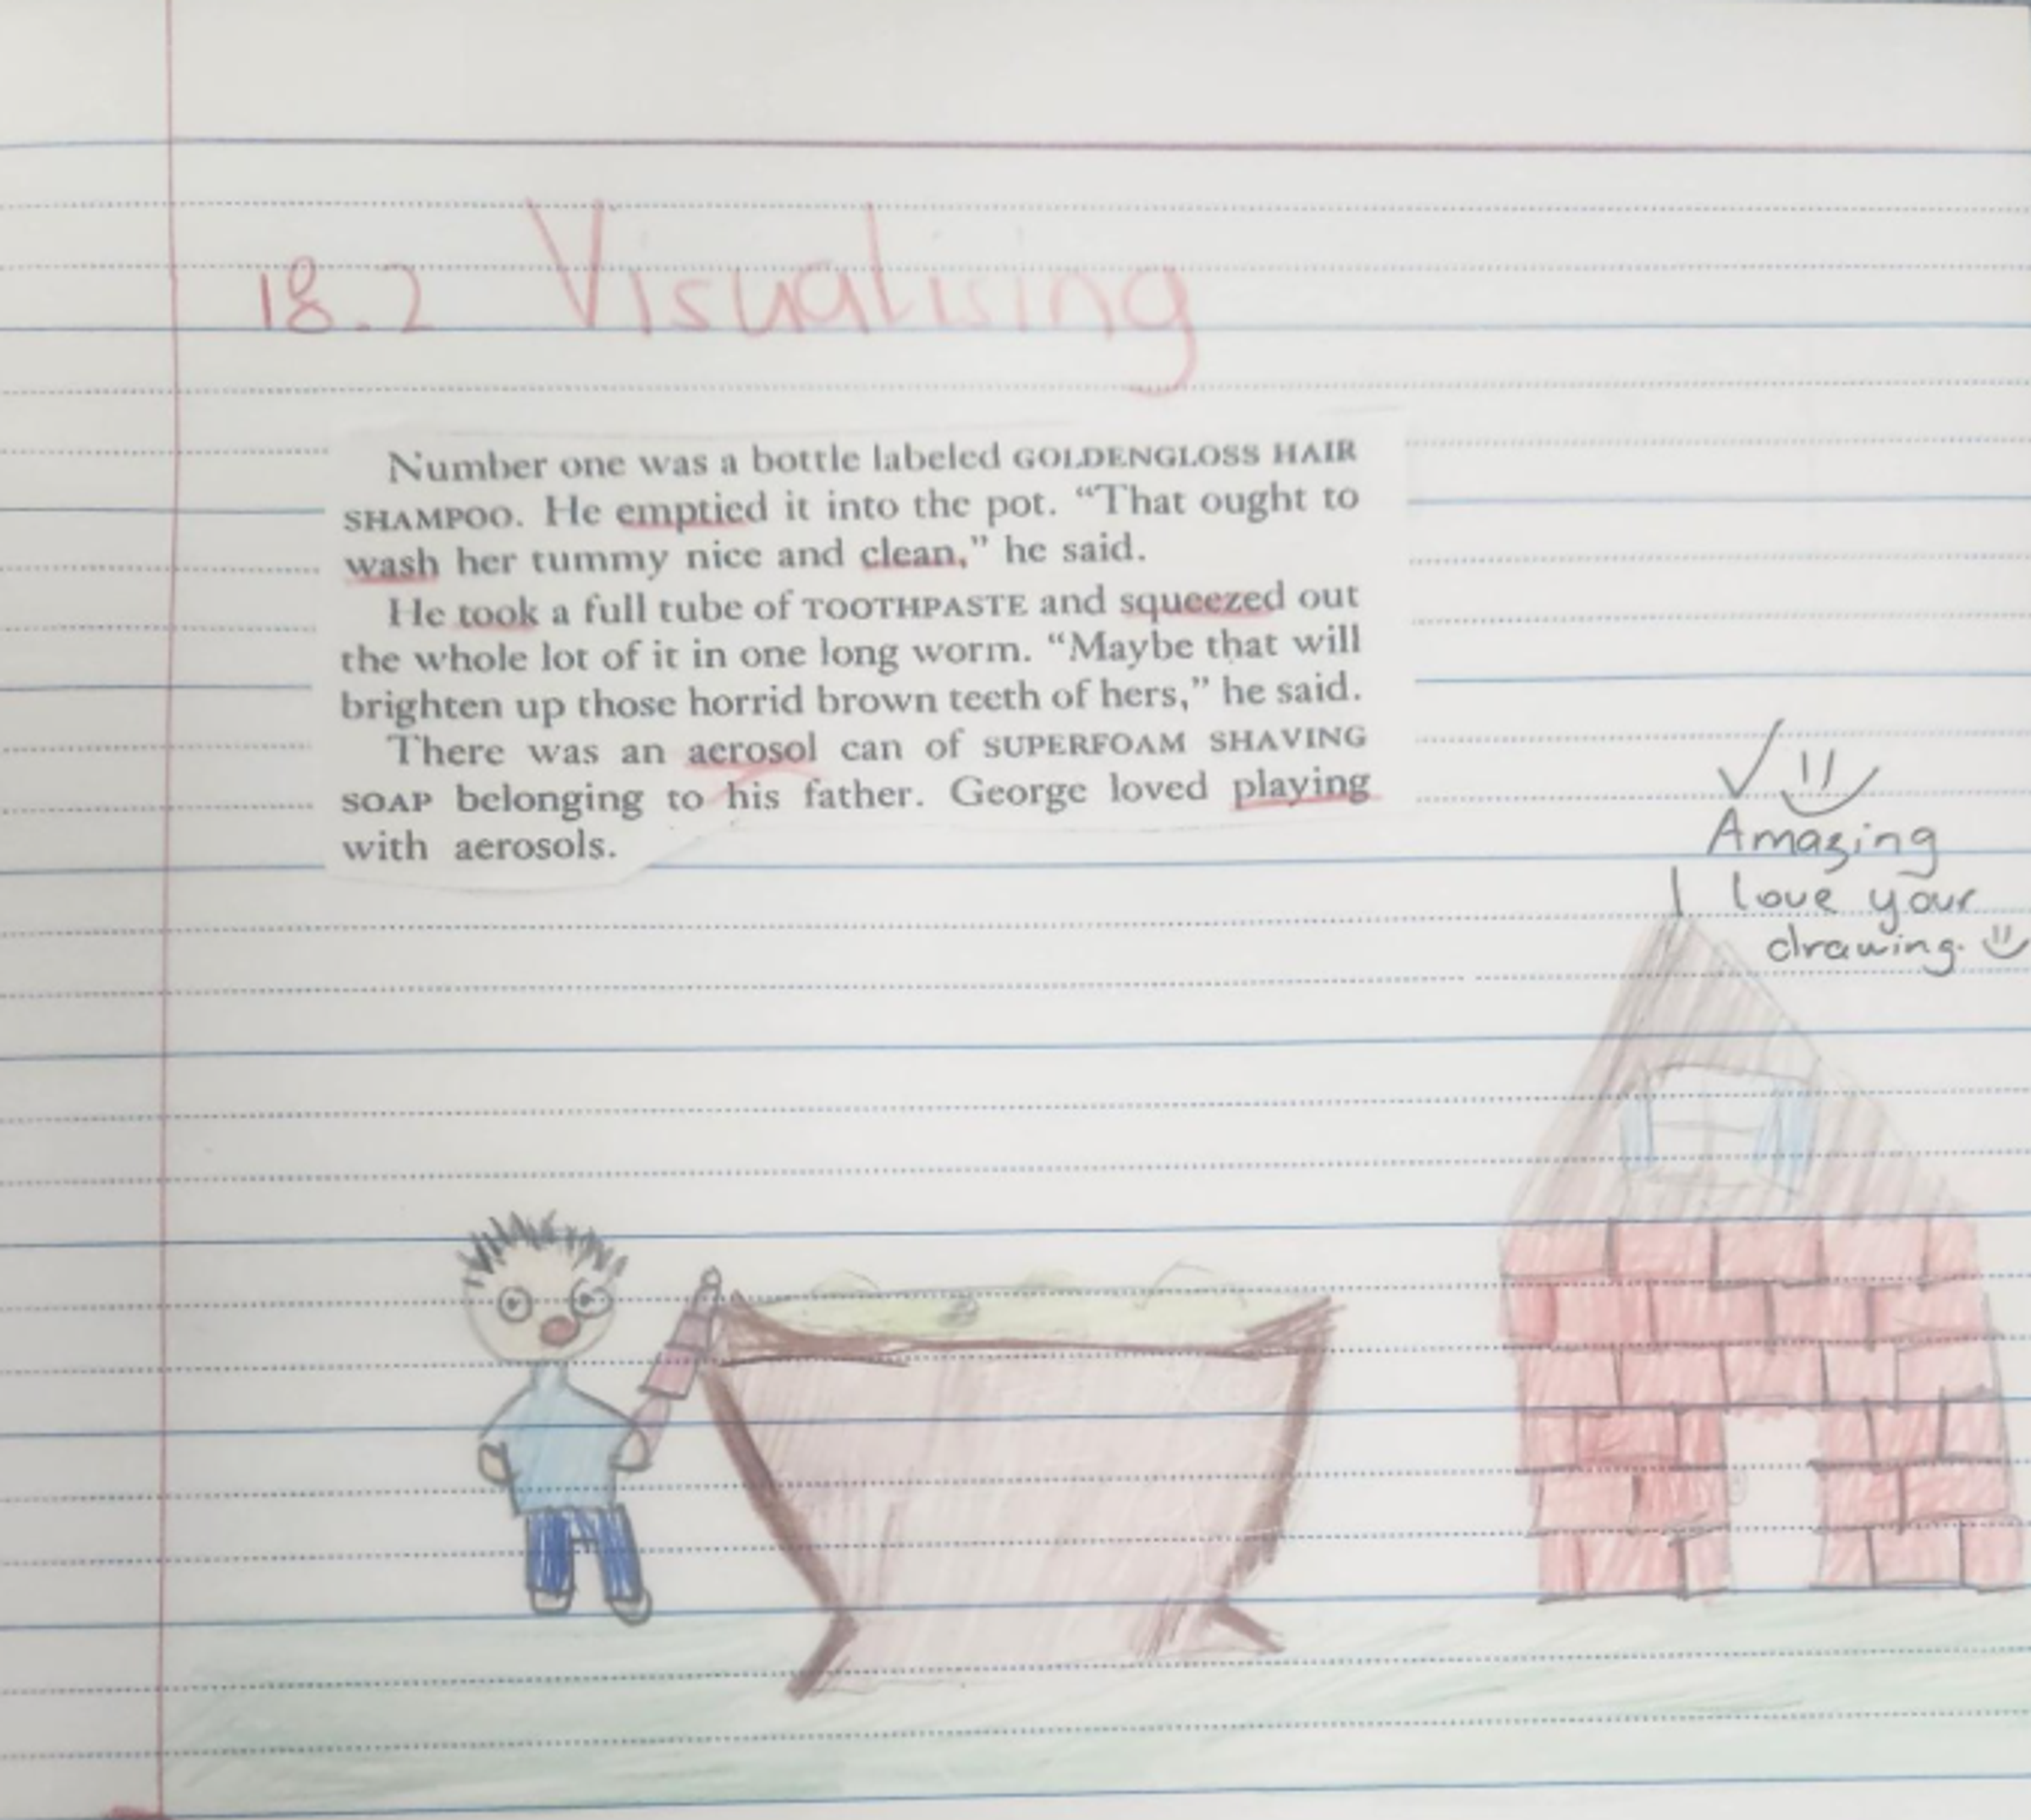 18.2 Visualising
Number one was a bottle labeled GOLDENGLOSS HAIR
SHAMPOO. He emptied it into the pot. “That ought to
wash her tummy nice and clean,” he said.
He took a full tube of TOOTHPASTE and squeezed out
the whole lot of it in one long worm. “Maybe that will
brighten up those horrid brown teeth of hers,” he said.
There was an aerosol can of SUPERFOAM SHAVING
SOAP belonging to his father. George loved playing
with aerosols.
Amazing
I love your
drawing.